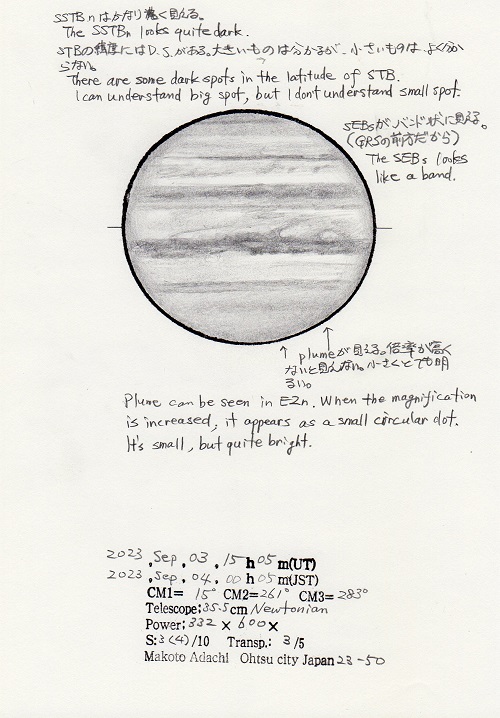 SSTBnはかなり濃く見える。
The SSTBn looks quite dark.
STBの緯度にはD.S.がある。大きいものは分かるが、小さいものは、よく分か
らない。
There are some dark spots in the latitude of STB.
I can understand big spot, but I dont understand small spot.
SEBsがバンド状に見える。
(GRSの前方だから)
The SEBs looks
like a band.
plumeが見える。倍率が高く
ないと見えない。小さくとても明
るい。
Plume can be seen in EZn. When the magnification
is increased, it appears as a small circular dot.
It's small, but quite bright.
2023, Sep, 03, 15 h 05 m(UT)
2023, Sep, 04, 00 h 05 m(JST)
CM1= 15° CM2=261° CM3= 283°
Telescope; 35.5cm Newtonian
Power; 332 × 600 ×
S: 3(4)/10 Transp.: 3/5
Makoto Adachi Ohtsu city Japan 23-50